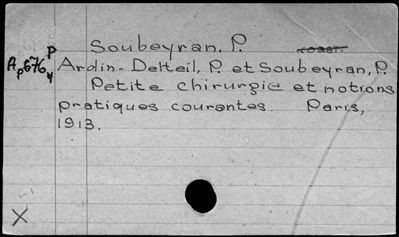 Soubeyran, P.
Ardin-Delteil, P. et Soubeyran, P.
Petite chirurgie et notions
pratiques courantes. Paris,
1913.
X